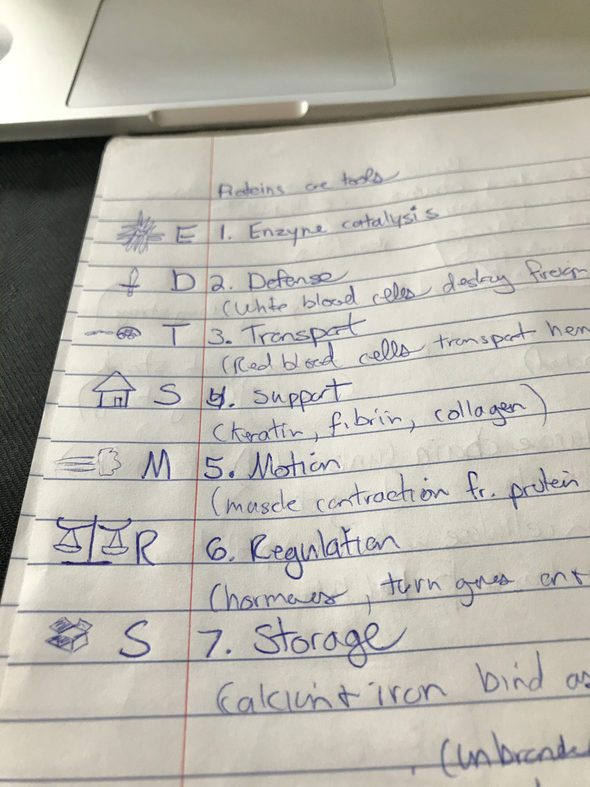 Proteins are tools
E 1. Enzyme catalysis
D 2. Defense
(White blood cells destroy foreign
T 3. Transport
(Red blood cells transport hem
S 4. Support
(Keratin, fibrin, collagen)
M 5. Motion
(muscle contraction fr. protein
R 6. Regulation
(hormones, turn genes on
S 7. Storage
Calcium + iron bind as